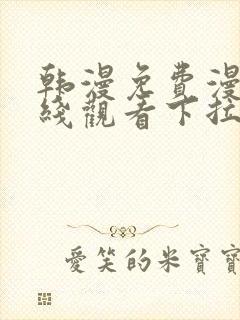 韩漫免費漫
綫觀看下拉
愛笑的米寶寶